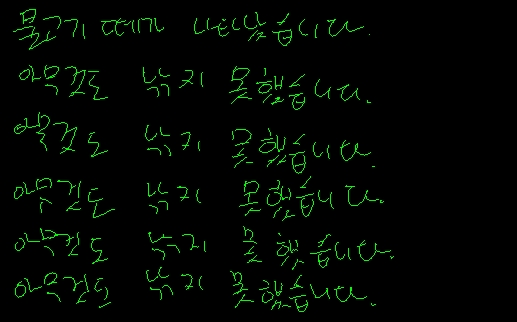 물고기 떼가 나타났습니다.
아무것도 낚지 못했습니다.
아무것도 낚지 못했습니다.
아무것도 낚지 못했습니다.
아무것도 낚지 못했습니다.
아무것도 낚지 못했습니다.